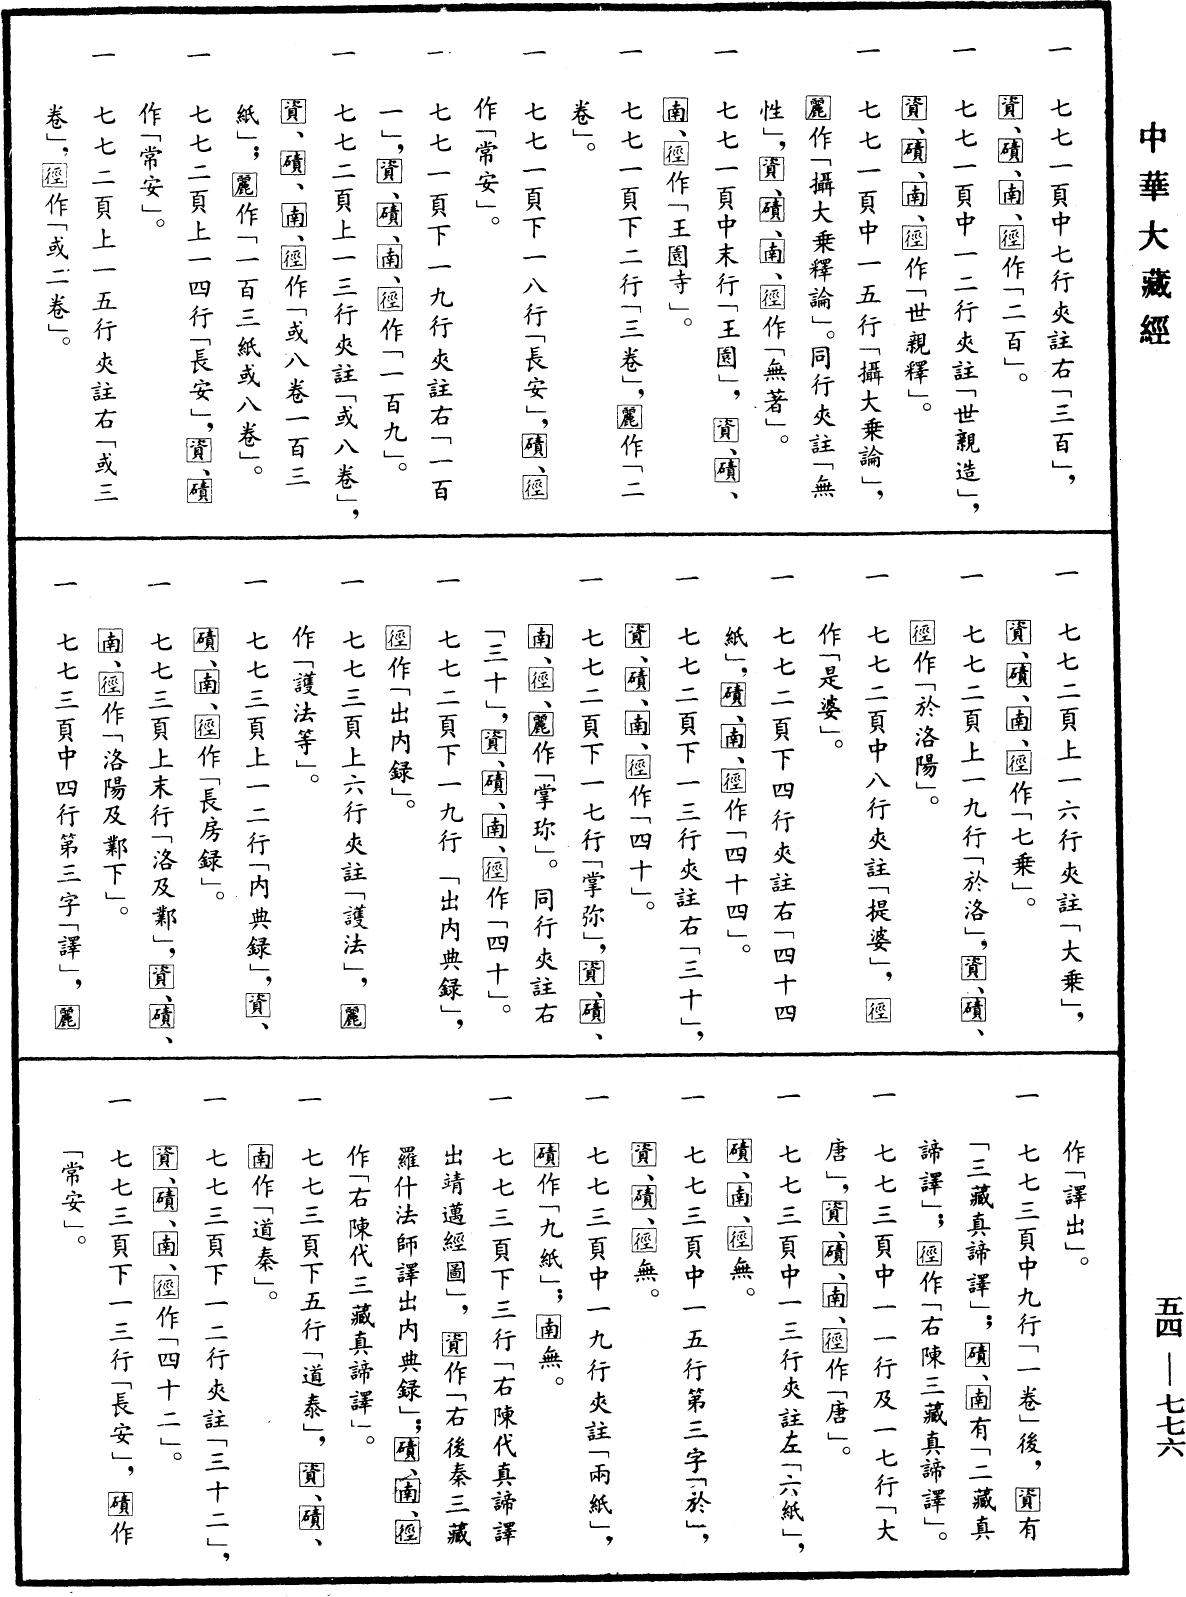 中華大藏經
一　七七一頁中七行夾註右「三百」，
資、磧、南、徑作「二百」。
一　七七一頁中一二行夾註「世親造」，
資、磧、南、徑作「世親釋」。
一　七七一頁中一五行「攝大乘論」，
麗作「攝大乘釋論」。同行夾註「無
性」，資、磧、南、徑作「無著」。
一　七七一頁中末行「王園」，資、磧、
南、徑作「王園寺」。
一　七七一頁下二行「三卷」，麗作「二
卷」。
一　七七一頁下一八行「長安」，磧、徑
作「常安」。
一　七七一頁下一九行夾註右「一百
一」，資、磧、南、徑作「一百九」。
一　七七二頁上一三行夾註「或八卷」，
資、磧、南、徑作「或八卷一百三
紙」；麗作「一百三紙或八卷」。
一　七七二頁上一四行「長安」，資、磧
作「常安」。
一　七七二頁上一五行夾註右「或三
卷」，徑作「或二卷」。
一　七七二頁上一六行夾註「大乘」，
資、磧、南、徑作「七乘」。
一　七七二頁上一九行「於洛」，資、磧、
徑作「於洛陽」。
一　七七二頁中八行夾註「提婆」，徑
作「是婆」。
一　七七二頁下四行夾註右「四十四
紙」，磧、南、徑作「四十四」。
一　七七二頁下一三行夾註右「三十」，
資、磧、南、徑作「四十」。
一　七七二頁下一七行「掌弥」，資、磧、
南、徑、麗作「掌珎」。同行夾註右
「三十」，資、磧、南、徑作「四十」。
一　七七二頁下一九行「出內典録」，
徑作「出内録」。
一　七七三頁上六行夾註「護法」，麗
作「護法等」。
一　七七三頁上一二行「内典録」，資、
磧、南、徑作「長房録」。
一　七七三頁上末行「洛及鄴」，資、磧、
南、徑作「洛陽及鄴下」。
一　七七三頁中四行第三字「譯」，麗
作「譯出」。
一　七七三頁中九行「一卷」後，資有
「三藏真諦譯」；磧、南有「二藏真
諦譯」；徑作「右陳三藏真諦譯」。
一　七七三頁中一一行及一七行「大
唐」，資、磧、南、徑作「唐」。
一　七七三頁中一三行夾註左「六紙」，
磧、南、徑無。
一　七七三頁中一五行第三字「於」，
資、磧、徑無。
一　七七三頁中一九行夾註「兩紙」，
磧作「九紙」；南無。
一　七七三頁下三行「右陳代真諦譯
出靖邁經圖」，資作「右後秦三藏
羅什法師譯出内典録」；磧、南、徑
作「右陳代三藏真諦譯」。
一　七七三頁下五行「道泰」，資、磧、
南作「道秦」。
一　七七三頁下一二行夾註「三十二」，
資、磧、南、徑作「四十二」。
一　七七三頁下一三行「長安」，磧作
「常安」。
五四—七七六